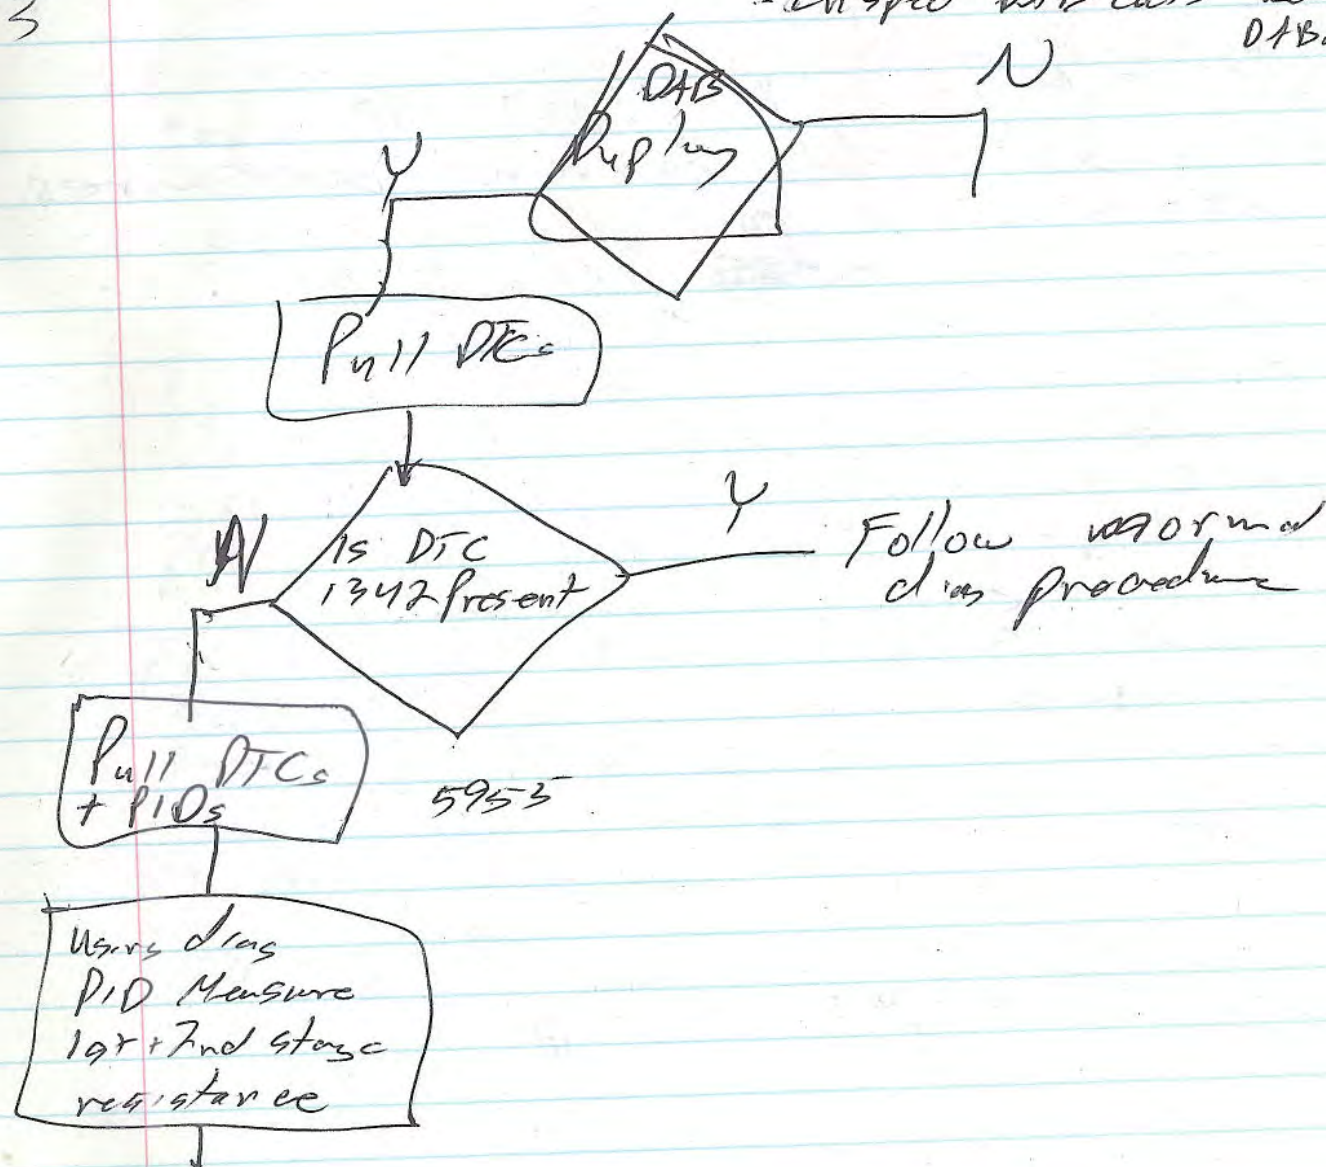 DAB
N
DAB
Deploy
Y
Pull DTCs
Y
N
Is DTC
1342 Present
Follow normal
diag procedure
Pull DTCs
+ PIDs
5953
Using diag
PID Measure
1st + 2nd stage
resistance